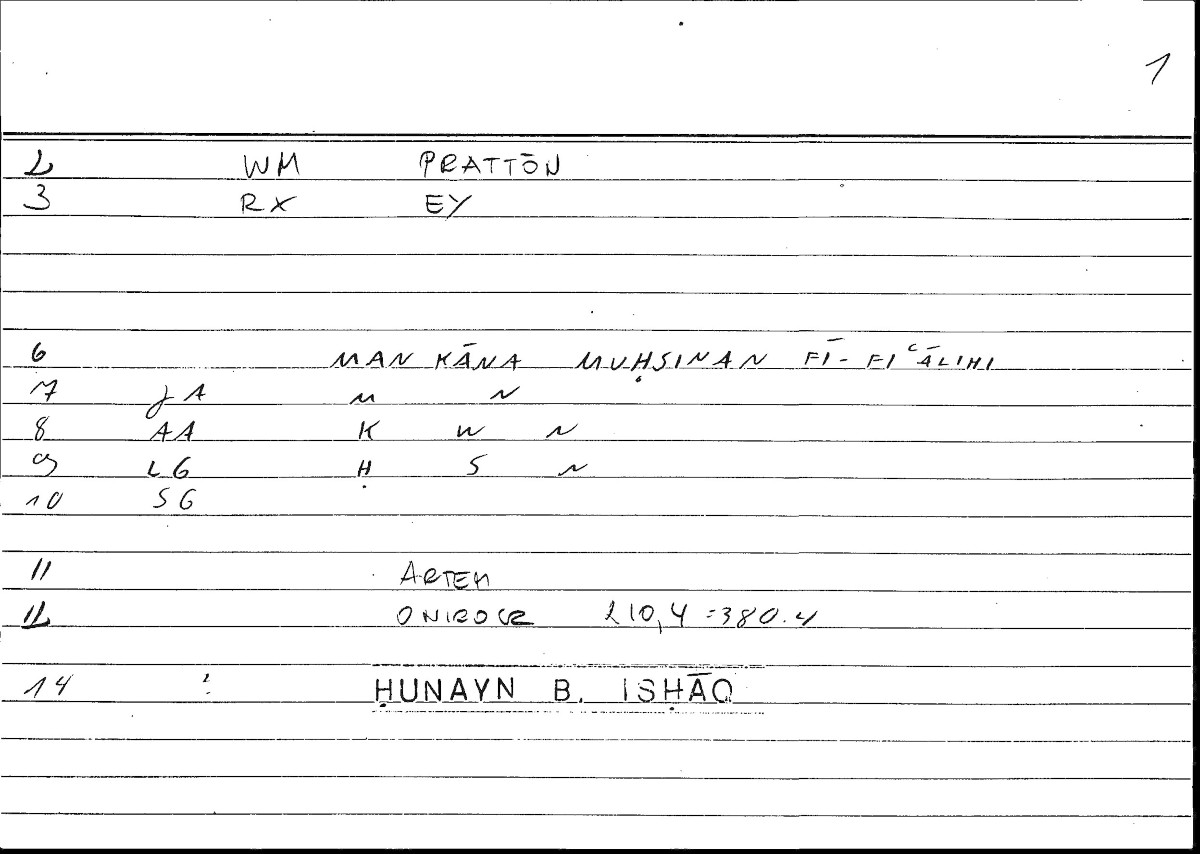 1
2 WM PRATTŌN
3 RX EY
6 MAN KĀNA MUḤSINAN FĪ-FIʿĀLIHI
7 JA M N
8 AA K W N
9 LG Ḥ S N
10 SG
11 ARTEM
12 ONIROCR 210,4 =380.4
14 : ḤUNAYN B. ISḤĀQ